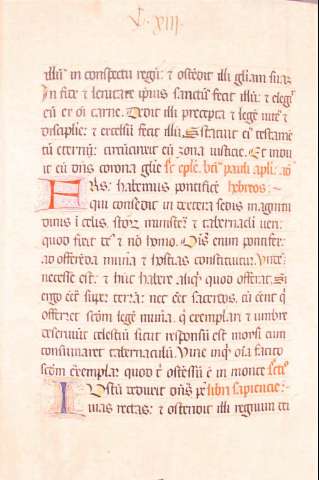 L. XIII
illū in conspectu regū: & ostēdit illi gliam suā
In fide & lenitate ipius sanctū fecit illū: & elegit
eū ex oī carne. Dedit illi precepta & legē uite &
discipline: & excelsū fecit illū. Statuit ei testamē
tū eternū: circūcinxit eū zona iusticie. Et indu
it eū dn̄s corona glie. bti pauli apli: ad
FRS: habemus pontificē hebreos:
qui consedit in dextera sedis magnitu
dinis ī celis, stor̄ minister & tabernacli ueri:
quod fixit & nō homo. Oīs enim pontifex
ad offerēda mūa & hostias constituitur. Unde
necesse est & hūc habere aliqd quod offerat. Si
ergo eēt super terrā: nec eēt sacerdos, cū eēnt q
offerēt scdm legē mūa. q exemplari & umbre
deseruiūt celestiū sicut responsū est moysi cum
consūmaret tabernaculū. Vide inqt oīa facito
scdm exemplar quod t ostēsū ē in monte
IUstū deduxit dn̄s p libri sapiencie:
uias rectas: & ostendit illi regnum dei